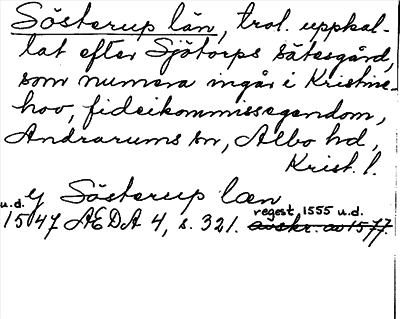 Sösterup län, trol. uppkal-
lat efter Sjötorps sätesgård,
som numera ingår i Kristine-
hov, fideikommissegendom,
Andrarums sn, Albo hd,
Krist. l.
y Sösterup læn
u.d. regest 1555 u.d.
1547 ÆDA 4, s. 321. avskr. av 1577.